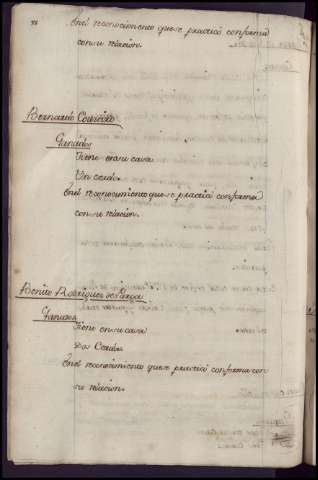 En el reconocimiento que se practicó conforma
con su relacion.
Bernardo
Ganados
Tiene en su casa
Un cerdo.
En el reconocimiento que se practicó conforma
con su relacion.
Benito Rodriguez de Parga
Ganados
Tiene en su casa
Dos Cerdos
En el reconocimiento que se practicó conforma con
su relacion.